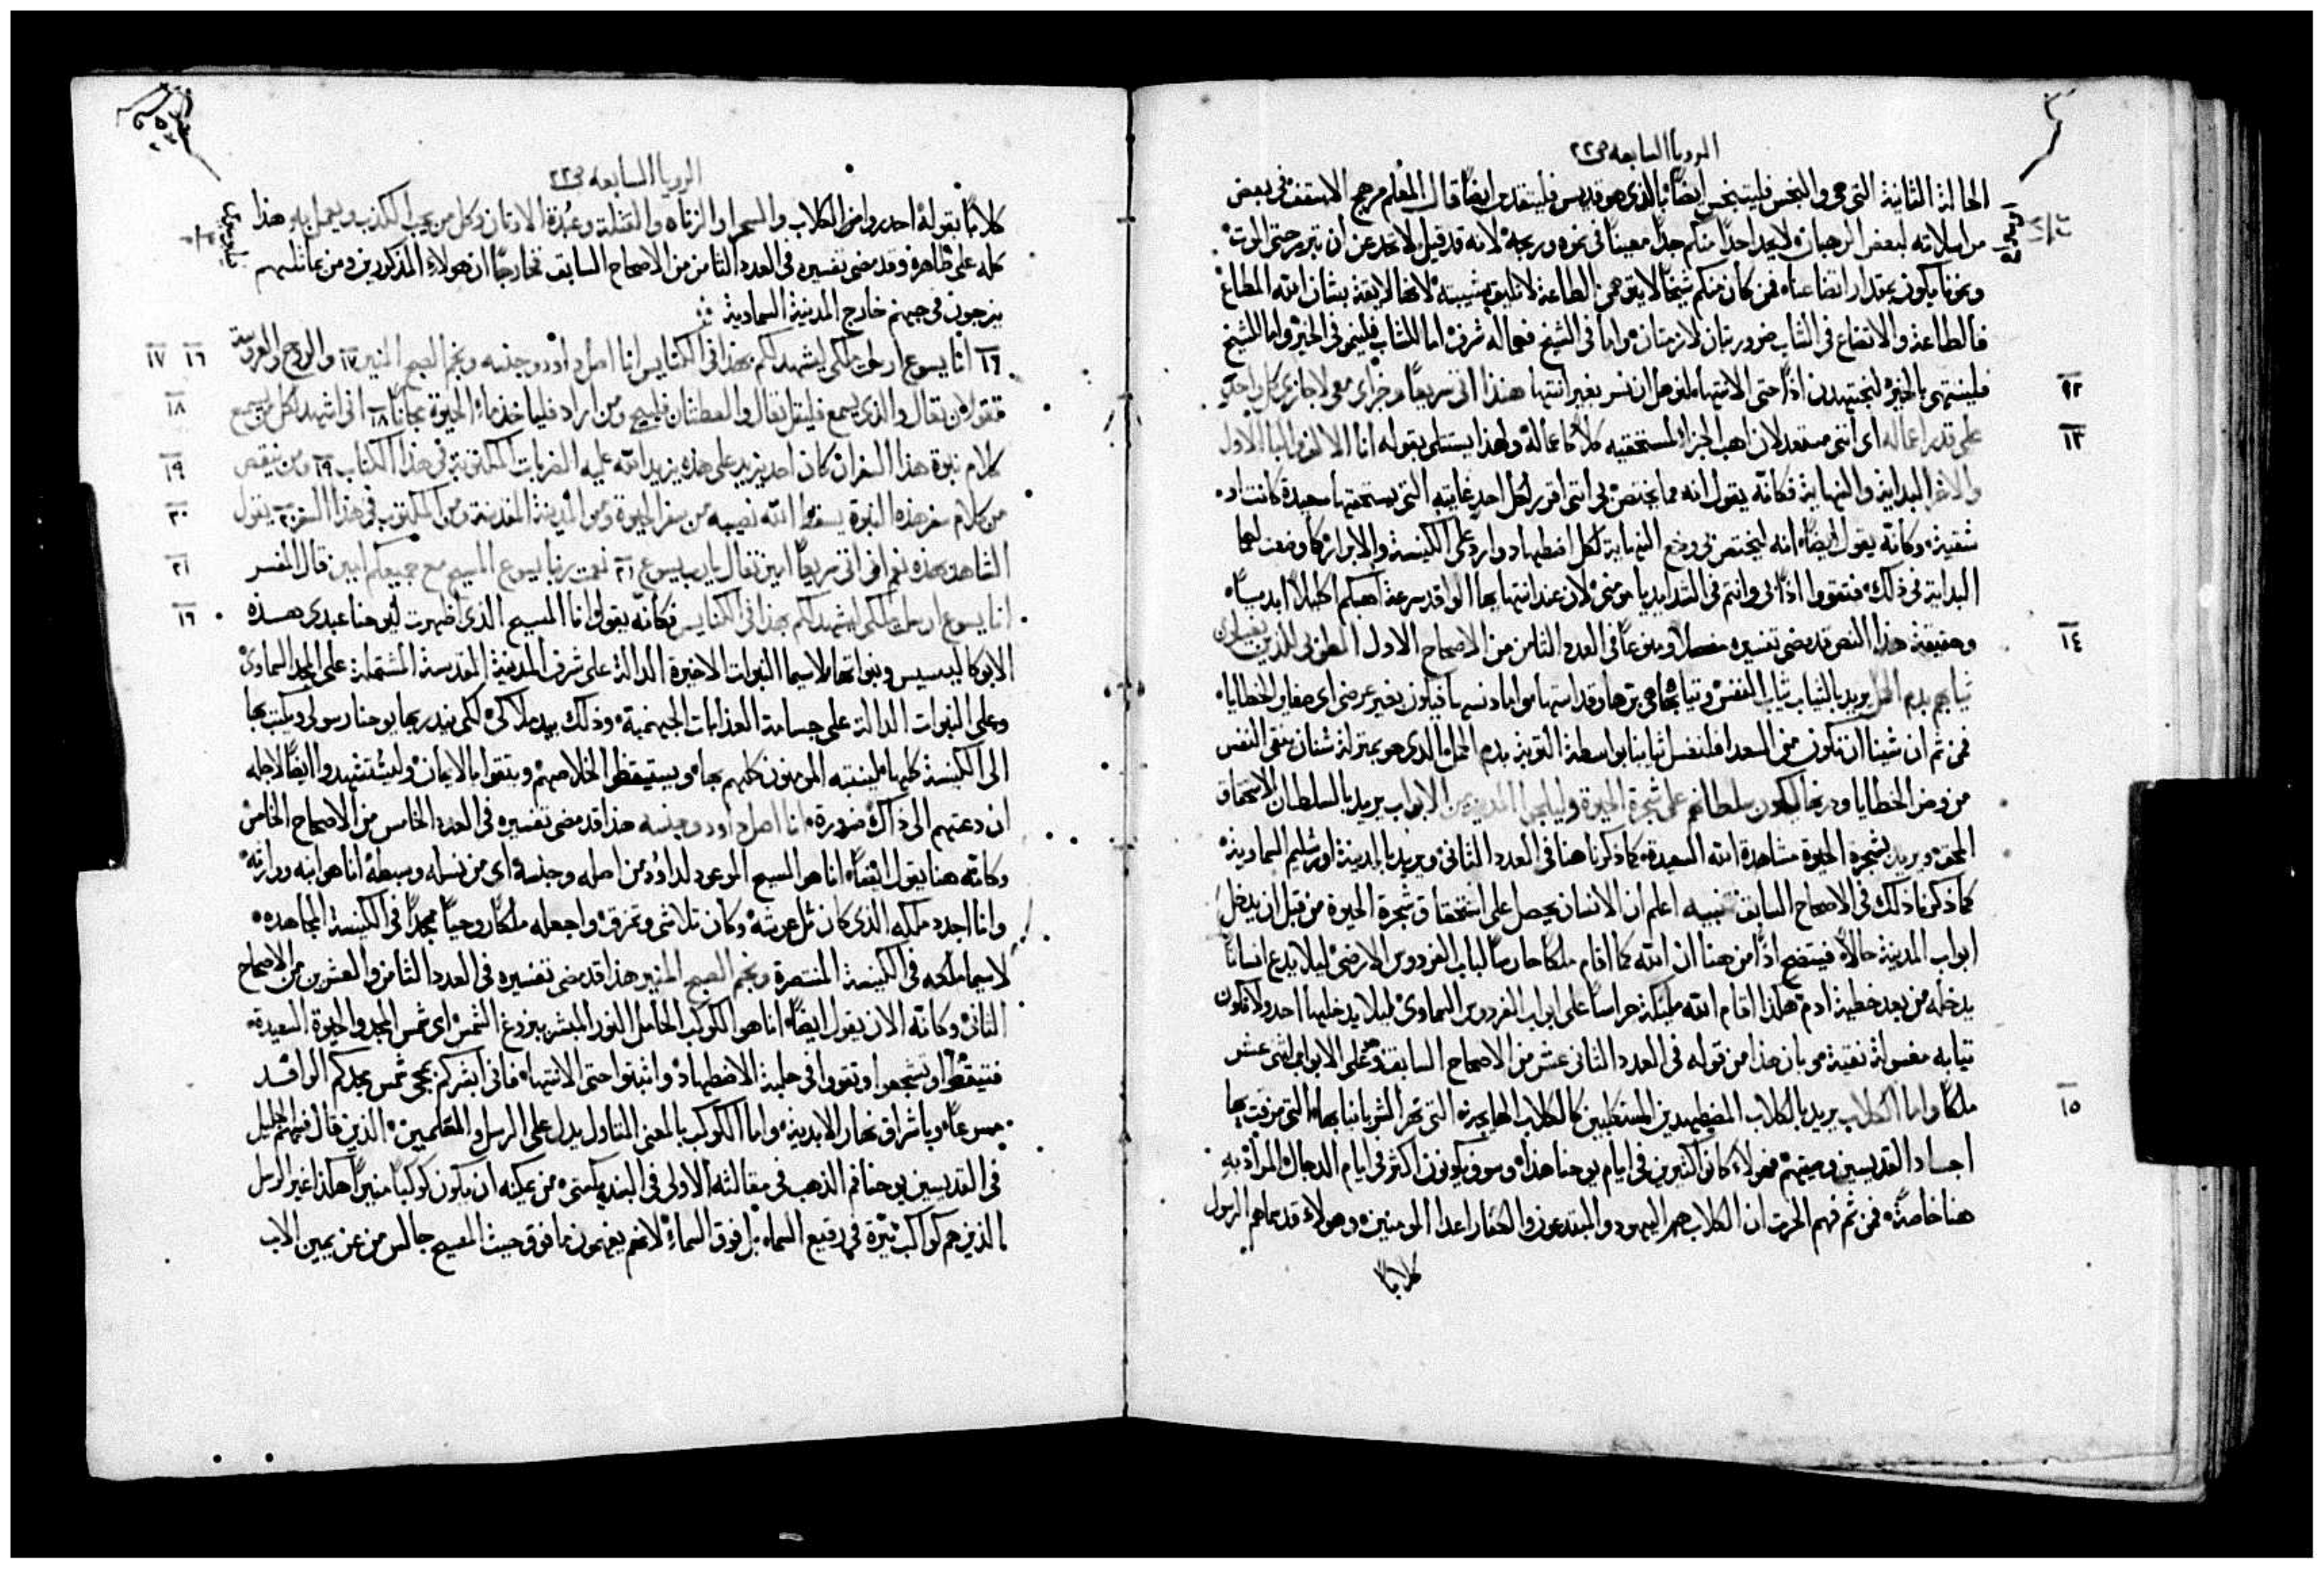 الرويا السابعه ص٢٢
الحالة الثانية التي هي والنجس فليتنجس ايضًا والذي هو قديس فليتقدس ايضًا قال المعلم الاسقف في بعض
من لا يجد احدًا منكم حدًا معينًا في نموه وربحه لانه قد قيل لا تحد عن ان تتبرر حتى الموت
ونمونا يكون بمقدار اتضاعنا فمن كان منكم شيخًا لا الطاعة لا تليق بشيبته لانها لايقة بشان ابنه المطاع
فالطاعة والاتضاع في الشاب ضروريتان لازمتان واما في الشيخ شرف اما الشاب فلينمو في الخير واما الشيخ
فلينتهي بالخير لنجتهدن اذًا حتى الانتها بغير انتها هنذا اتي سريعًا وجزاي معي لاجازي كل واحدٍ
١٢
على قدر اعماله اي انني مستعد لان اهب الجزا لمستحقيه كلاً كاعماله ولهذا يستتلي بقوله انا الالف واليا الاول
١٣
والاخر البداية والنهاية فكانه يقول انه مما يختص بي انني اقرر لكل احدٍ غايته التي يستحقها سعيدة كانت او
شقية وكانه يقول ايضًا انه يختص بي وضع النهاية لكل اضطهاد وارد على الكنيسة والابرار كما وضعت لهما
البداية في ذلك فتقووا اذًا بي وانتم في الشدايد يا مومني لان عند انتهايها الوافد سرعة اهبكم اكليلاً ابديًا
وحقيقة هذا النص قد مضى تفسيره مفصلاً ومنوعًا في العدد الثامن من الاصحاح الاول الطوبى للذين يغسلون
١٤
ثيابهم بدم الحمل يريد بالثياب ثياب النفس وثيابها هي برها وقداستها واما دنسها فيكون بغير عرضي اي صغاير الخطايا
فمن ثم ان شينا ان نكون من السعدا فلنغسل ثيابنا بواسطة التوبة بدم الحمل الذي هو بمنزلة شنان ينقي النفس
من وضر الخطايا ودرنها ليكون سلطانهم على شجرة الحيوة وليلجوا المدينة من الابواب يريد بالسلطان الاستحقاق
المحق ويريد بشجرة الحيوة مشاهدة الله السعيدة كما ذكرنا هنا في العدد الثاني ويريد بالمدينة اورشليم السماوية
كما ذكرنا ذلك في الاصحاح السابق تنبيه اعلم ان الانسان يحصل على استحقاق شجرة الحيوة من قبل ان يدخل
ابواب المدينة حالاً فيتضح اذًا من هنا ان الله كما اقام ملكًا حارسًا لباب الفردوس الارضي ليلا يدع انسانًا
يدخله من بعد خطية ادم هكذا اقام الله مليكة حراسًا على ابواب الفردوس السماوي ليلا يدخلها احد ولا تكون
ثيابه مغسولة نقية من قوله في العدد الثاني عشر من الاصحاح السابق وعلى الابواب اثنى عشر
ملكًا واما الكلاب يريد بالكلاب المضطهدين المتكلبين كالكلاب الهايجة التي تهر الشر بانيابها التي مزقت بها
١٥
اجساد القديسين وصيتهم فهولاء كانوا كثيرين في ايام يوحنا هذا وسوف يكونون اكثر في ايام الدجال المراد به
هنا خاصةً فمن ثم فهم ان الكلاب هم اليهود والمبتدعون والكفار اعدا المومنين وهولاء قد سماهم الرسول
كلابًا
الرويا السابعه ص٢٢
كلابًا بقوله احذروا من الكلاب والسحرا والزناه والقتلة وعبدة الاوثان وكل من يحب الكذب ويعمل به هذا
كله على ظاهره وقد مضى تفسيره في العدد الثامن من الاصحاح السابق خارجًا ان هولاء المذكورين ومن يماثلهم
يزجون في جهنم خارج المدينة السماوية
١٦ انا يسوع ارسلت ملكي ليشهد لكم بهذا في الكنايس انا اصل داوود وجنسه ونجم الصبح المنير ١٧ والروح والعروسة
١٦ ١٧
يقولان تعال والذي يسمع فليقل تعال والعطشان فليجي ومن اراد فلياخذ ماء الحيوة مجانًا ١٨ اني اشهد لكل من يسمع
١٨
كلام نبوة هذا السفر ان كان احد يزيد على هذه يزيد الله عليه الضربات المكتوبة في هذا الكتاب ١٩ ومن ينقص
١٩
من كلام سفر هذه النبوة يسقط الله نصيبه من سفر الحيوة ومن المدينة المقدسة ومن المكتوب في هذا السفر ٢٠ يقول
٢٠
الشاهد بهذه نعم اني اتي سريعًا امين تعال يا رب يسوع ٢١ نعمت ربنا يسوع المسيح مع جميعكم امين قال المفسر
٢١
انا يسوع ارسلت ملكي ليشهد لكم بهذا في الكنايس فكانه يقول انا المسيح الذي اظهرت ليوحنا عبدي هذه
١٦
الابوكاليبسيس ونبواتها لاسيما النبوات الاخيرة الدالة على شرف المدينة المقدسة المشتملة على المجد السماوي
وعلى النبوات الدالة على جسامة العذابات الجهنمية وذلك بيد ملاكي لكي يندر بها يوحنا رسولي ويكتب بها
الى الكنيسة كلها لينتبه المومنون كلهم بها ويستيقظوا لخلاصهم ويتقوا بالايمان وليستشهدوا ايضًا لاجله
ان دعتهم الى ذاك ضرورة انا اصل داود وجنسه هذا قد مضى تفسيره في العدد الخامس من الاصحاح الخامس
وكانه هنا يقول ايضًا انا هو المسيح الموعود لداوُد من اصله وجنسه اي من نسله وسبطه انا هو ابنه ووارثه
وانا اجدد ملكه الذي كان ثل عرشه وكان تلاشى وتمزق واجعله ملكًا روحيًا مجدًا في الكنيسة المجاهده
لاسيما ملكه في الكنيسة المنتصرة ونجم الصبح المنير هذا قد مضى تفسيره في العدد الثامن والعشرين من الاصحاح
الثاني وكانه الان يقول ايضًا انا هو الكوكب الحامل النور المبشر ببزوغ الشمس اي شمس المجد والحيوة السعيدة
فتيقظوا وتشجعوا وتقووا في حلبة الاضطهاد واثبتوا حتى الانتها فاني ابشركم بمجي شمس مجدكم الوافد
سرعًا وباشراق نهار الابدية واما الكوكب بالمعنى المتاول يدل على الرسل والمعلمين الذين قال فيهم الجليل
في القديسين يوحنا فم الذهب في مقالته الاولى في البنديكستي من يمكنه ان يكون كوكبًا منيرًا هكذا غير الرسل
الذين هم كواكب نيّرة في رقيع السماء بل فوق السماء لانهم يفهمون ما فوق حيث المسيح جالس من عن يمين الاب